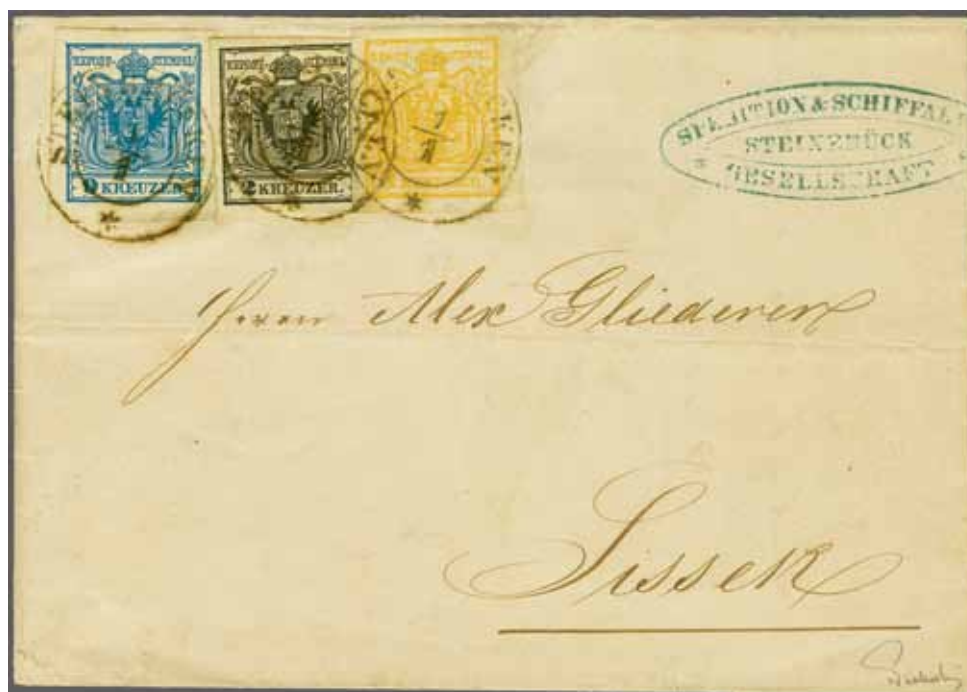 KKPOST-STEMPEL
9 KREUZER.
KKPOST-STEMPEL
2 KREUZER.
SPEDITION & SCHIFFAHRT
STEINBRÜCK
GESELLSCHAFT
1/1
1/1
Herrn Alex Gliederer
Sissek